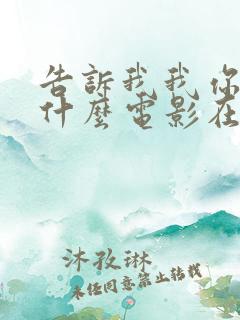 告訴我我你
什麼電影在
沐孜琳
未经同意禁止转载